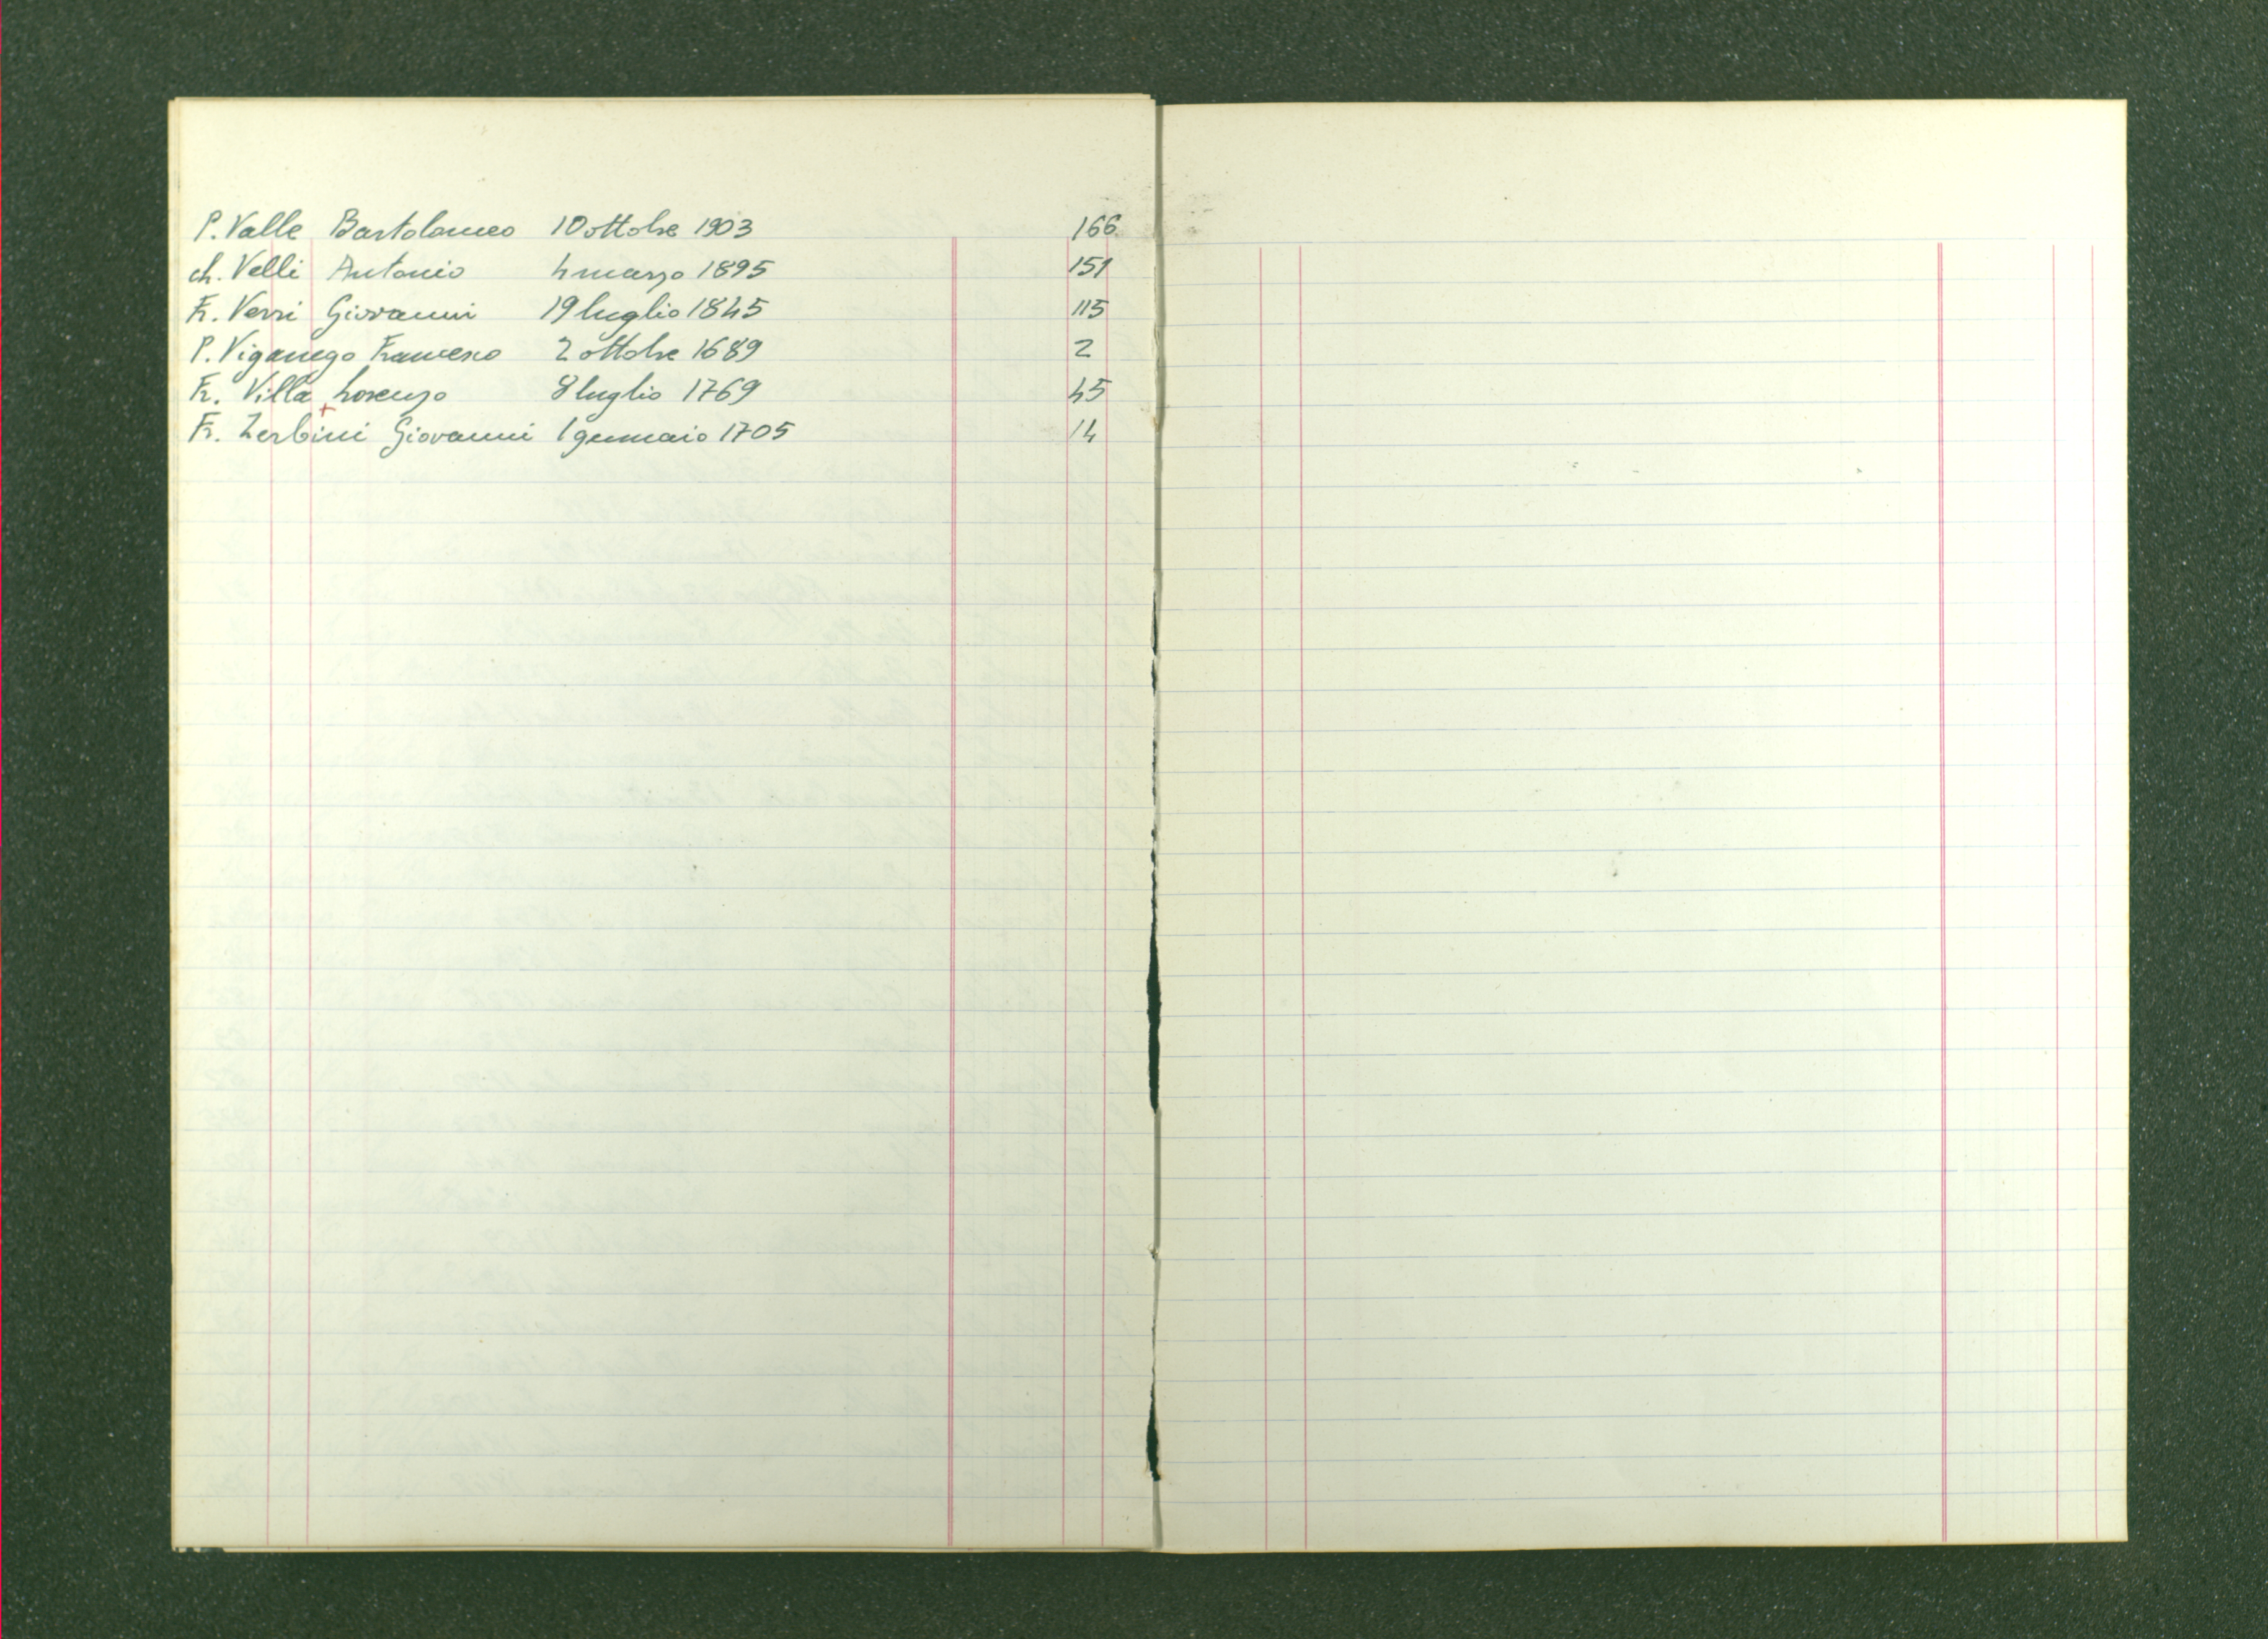 P. Valle Bartolomeo 10 ottobre 1903 166
ch. Velli Antonio 4 marzo 1895 151
Fr. Verri Giovanni 19 luglio 1845 115
P. Viganego Francesco 2 ottobre 1689 2
Fr. Villa Lorenzo 8 luglio 1769 45
Fr. Zerbini Giovanni 1 gennaio 1705 14